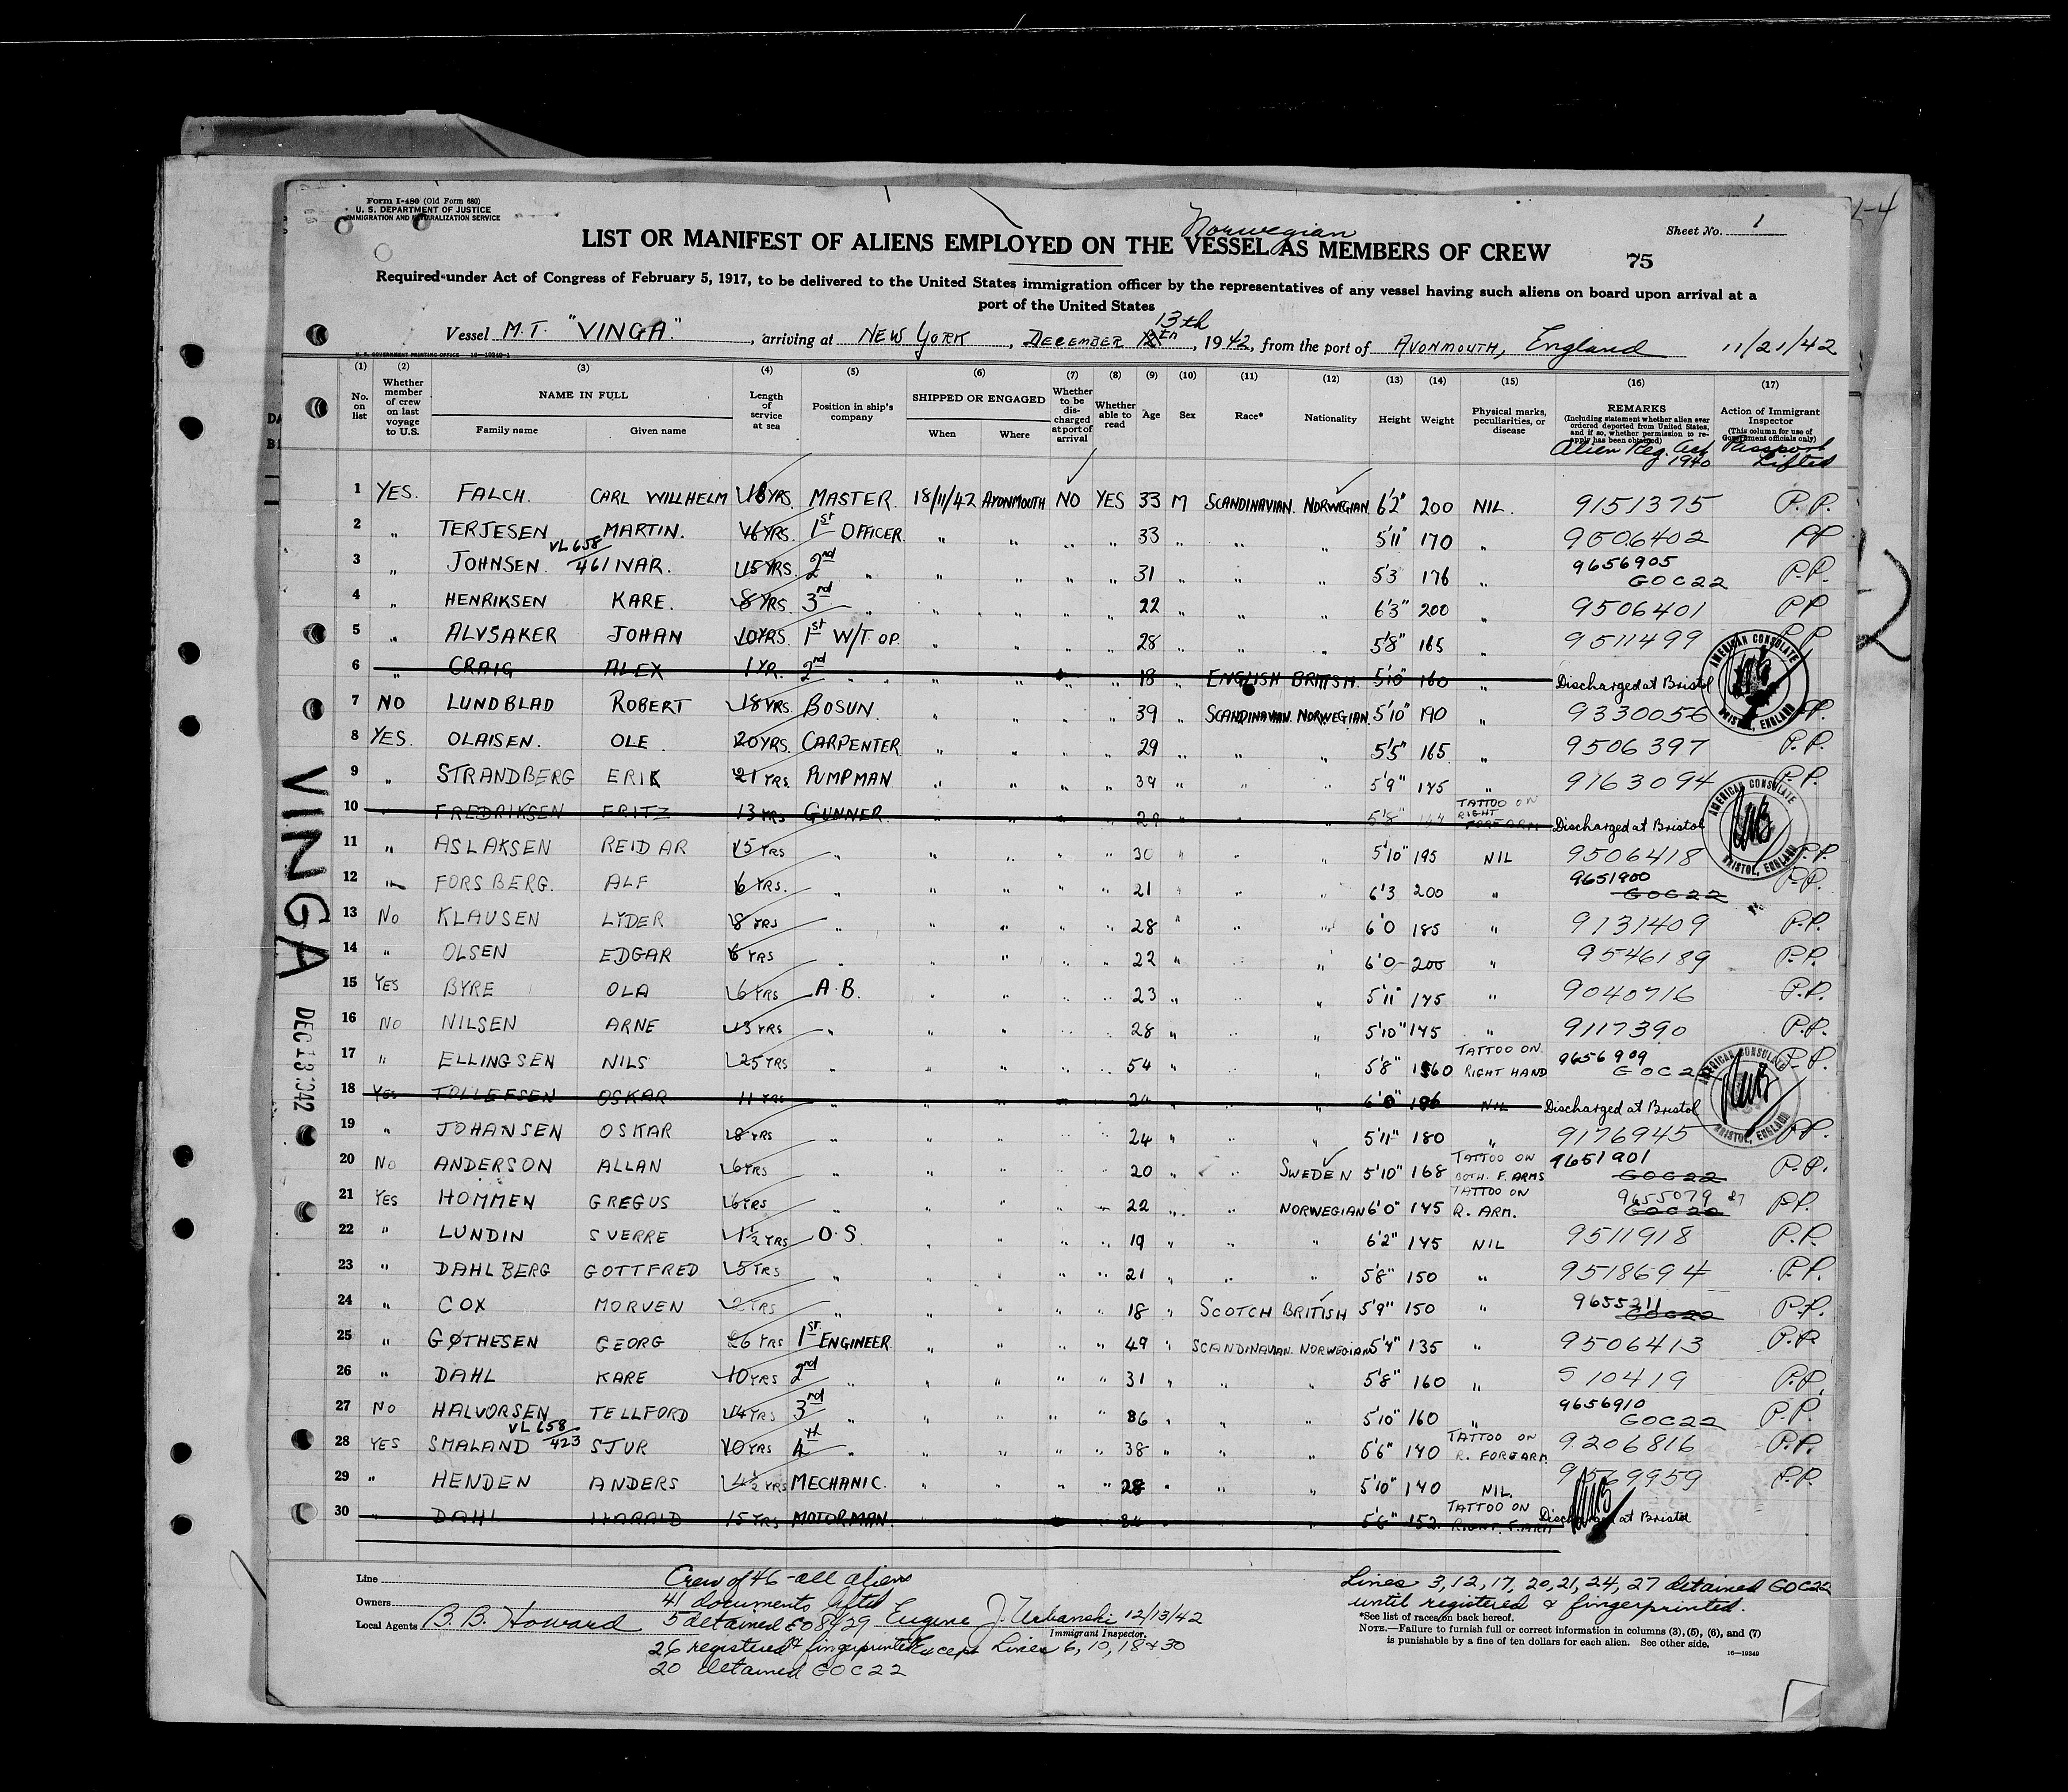 Form I-480 (Old Form 680)
U. S. DEPARTMENT OF JUSTICE
IMMIGRATION AND NATURALIZATION SERVICE
Sheet No. 1
Norwegian
LIST OR MANIFEST OF ALIENS EMPLOYED ON THE VESSEL AS MEMBERS OF CREW
75
Required under Act of Congress of February 5, 1917, to be delivered to the United States immigration officer by the representatives of any vessel having such aliens on board upon arrival at a
port of the United States
13th
Vessel M.T. "VINGA", arriving at NEW YORK, DECEMBER, 1942, from the port of AVONMOUTH, England 11/21/42
U. S. GOVERNMENT PRINTING OFFICE 16—19349-1
(1) (2) (3) (4) (5) (6) (7) (8) (9) (10) (11) (12) (13) (14) (15) (16) (17)
No. on list
Whether member of crew on last voyage to U.S.
NAME IN FULL
Family name
Given name
Length of service at sea
Position in ship's company
SHIPPED OR ENGAGED
When
Where
Whether to be discharged at port of arrival
Whether able to read
Age
Sex
Race*
Nationality
Height
Weight
Physical marks, peculiarities, or disease
REMARKS
(Including statement whether alien ever ordered deported from United States, and if so, whether permission to re-apply has been obtained)
Alien Reg. Act 1940
Action of Immigrant Inspector
(This column for use of Government officials only)
Passport Lifted
1 YES. FALCH. CARL WILLHELM 18 YRS. MASTER. 18/11/42 AVONMOUTH NO YES 33 M SCANDINAVIAN. NORWEGIAN. 6'2" 200 NIL. 9151375 P.P.
2 " TERJESEN MARTIN. 16 YRS. 1st OFFICER. " " " " 33 " " " 5'11" 170 " 9506402 PP
3 " JOHNSEN VL 658/461 IVAR. 15 YRS. 2nd " " " " " 31 " " " 5'3 176 " 9656905 GOC22 P.P.
4 " HENRIKSEN KARE. 8 YRS. 3rd " " " " " 22 " " " 6'3" 200 " 9506401 PP
5 " ALVSAKER JOHAN 10 YRS. 1st W/T. OP. " " " " 28 " " " 5'8" 165 " 9511499 P.P.
6 " CRAIG ALEX 1 YR. 2nd " " " " " 18 " ENGLISH BRITISH. 5'10" 160 " Discharged at Bristol
7 NO LUNDBLAD ROBERT 18 YRS. BOSUN. " " " " 39 " SCANDINAVIAN. NORWEGIAN. 5'10" 190 " 9330056 P.P.
8 YES. OLAISEN. OLE. 20 YRS. CARPENTER. " " " " 29 " " " 5'5" 165 " 9506397 P.P.
9 " STRANDBERG ERIK 21 YRS. PUMPMAN " " " " 39 " " " 5'9" 175 " 9163094 P.P.
10 " FREDRIKSEN FRITZ 13 YRS GUNNER. " " " " 29 " " " 5'8" TATTOO ON RIGHT FOREARM Discharged at Bristol
11 " ASLAKSEN REIDAR 15 YRS " " " " " 30 " " " 5'10" 195 NIL 9506418 P.P.
12 " FORSBERG. ALF 6 YRS. " " " " " 21 " " " 6'3 200 " 9651900 GOC22 P.P.
13 NO KLAUSEN LYDER 8 YRS " " " " " 28 " " " 6'0 185 " 9131409 P.P.
14 " OLSEN EDGAR 6 YRS " " " " " 22 " " " 6'0 200 " 9546189 P.P.
15 YES BYRE OLA 6 YRS A.B. " " " " 23 " " " 5'11" 175 " 9040716 P.P.
16 NO NILSEN ARNE 13 YRS " " " " " 28 " " " 5'10" 175 " 9117390 P.P.
17 " ELLINGSEN NILS 25 YRS " " " " " 54 " " " 5'8" 160 TATTOO ON RIGHT HAND 9656909 GOC22 P.P.
18 YES TOLLEFSEN OSKAR 11 YRS " " " " " 24 " " " 6'0" 186 NIL Discharged at Bristol
19 " JOHANSEN OSKAR 8 YRS " " " " " 24 " " " 5'11" 180 " 9176945 P.P.
20 NO ANDERSON ALLAN 6 YRS " " " " " 20 " " SWEDEN 5'10" 168 TATTOO ON BOTH. F. ARMS 9651901 GOC22 P.P.
21 YES HOMMEN GREGUS 6 YRS " " " " " 22 " " NORWEGIAN 6'0" 175 TATTOO ON R. ARM. 9655079 P.P.
22 " LUNDIN SVERRE 1½ YRS O.S. " " " " 19 " " " 6'2" 175 NIL 9511918 P.P.
23 " DAHLBERG GOTTFRED 5 YRS " " " " " 21 " " " 5'8" 150 " 9518694 P.P.
24 " COX MORVEN 2 YRS " " " " " 18 " SCOTCH BRITISH 5'9" 150 " 9655211 GOC22 P.P.
25 " GØTHESEN GEORG 26 YRS 1st ENGINEER. " " " " 49 " SCANDINAVIAN. NORWEGIAN 5'4" 135 " 9506413 P.P.
26 " DAHL KARE 10 YRS 2nd " " " " " 31 " " " 5'8" 160 " 510419 P.P.
27 NO HALVORSEN TELLFORD 14 YRS 3rd " " " " " 36 " " " 5'10" 160 " 9656910 GOC22 P.P.
28 YES SMALAND VL 658/423 STUR 10 YRS 4th " " " " " 38 " " " 5'6" 170 TATTOO ON R. FOREARM. 9206816 P.P.
29 " HENDEN ANDERS 4½ YRS MECHANIC. " " " " 28 " " " 5'10" 140 NIL. P.P.
30 " DAHL HARALD 15 YRS MOTORMAN. " " " " 24 " " " 5'6" 152. TATTOO ON RIGHT. F. ARM Discharged at Bristol
AMERICAN CONSULATE BRISTOL, ENGLAND
AMERICAN CONSULATE BRISTOL, ENGLAND
AMERICAN CONSULATE BRISTOL, ENGLAND
VINGA
DEC 13 1942
Line
Owners
Local Agents B. B. Howard
Crew of 46 - all aliens
41 documents lifted
5 detained EO 8429 Eugene J. Urbanski 12/13/42
Immigrant Inspector.
26 registered & fingerprinted Except Lines 6, 10, 18 & 30
20 detained GOC22
Lines 3, 12, 17, 20, 21, 24, 27 detained GOC22
until registered & fingerprinted.
*See list of races on back hereof.
NOTE.—Failure to furnish full or correct information in columns (3), (5), (6), and (7)
is punishable by a fine of ten dollars for each alien. See other side.
16—19349